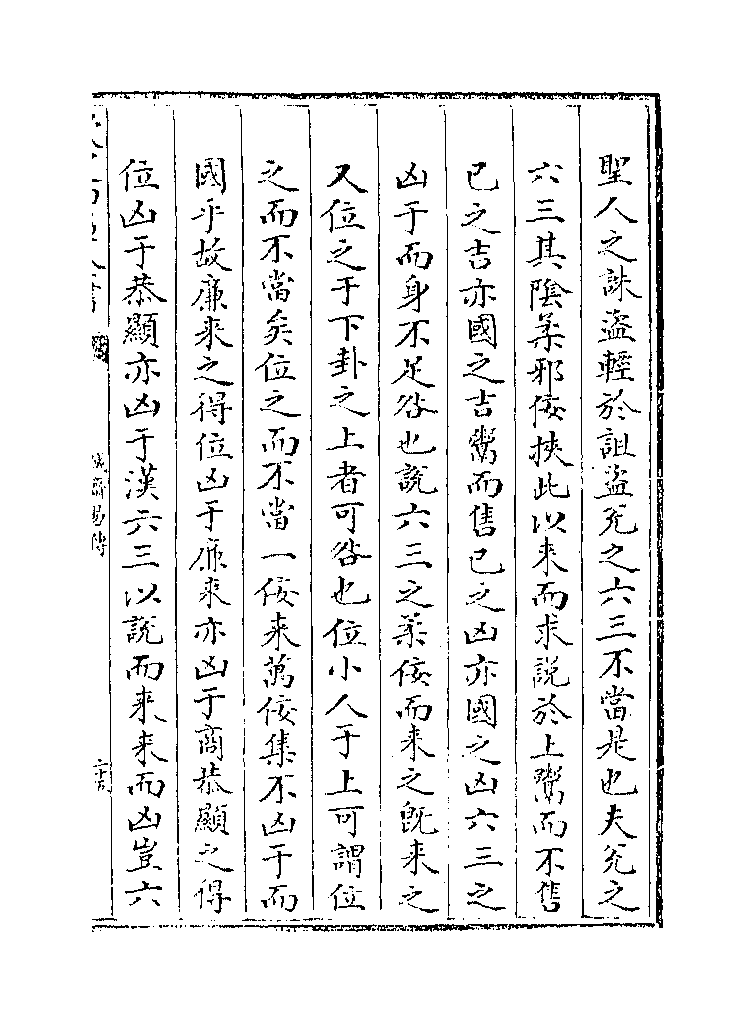 聖人之誅盜輕於詛盜兊之六三不當是也夫兊之
六三其陰柔邪佞挾此以来而求説於上鬻而不售
已之吉亦國之吉鬻而售已之凶亦國之凶六三之
凶于而身不足咎也說六三之柔佞而来之既来之
又位之于下卦之上者可咎也位小人于上可謂位
之而不當矣位之而不當一佞来萬佞集不凶于而
國乎故廉来之得位凶于廉来亦凶于商恭顯之得
位凶于恭顯亦凶于漢六三以說而来来而凶豈六
誠齋易傳